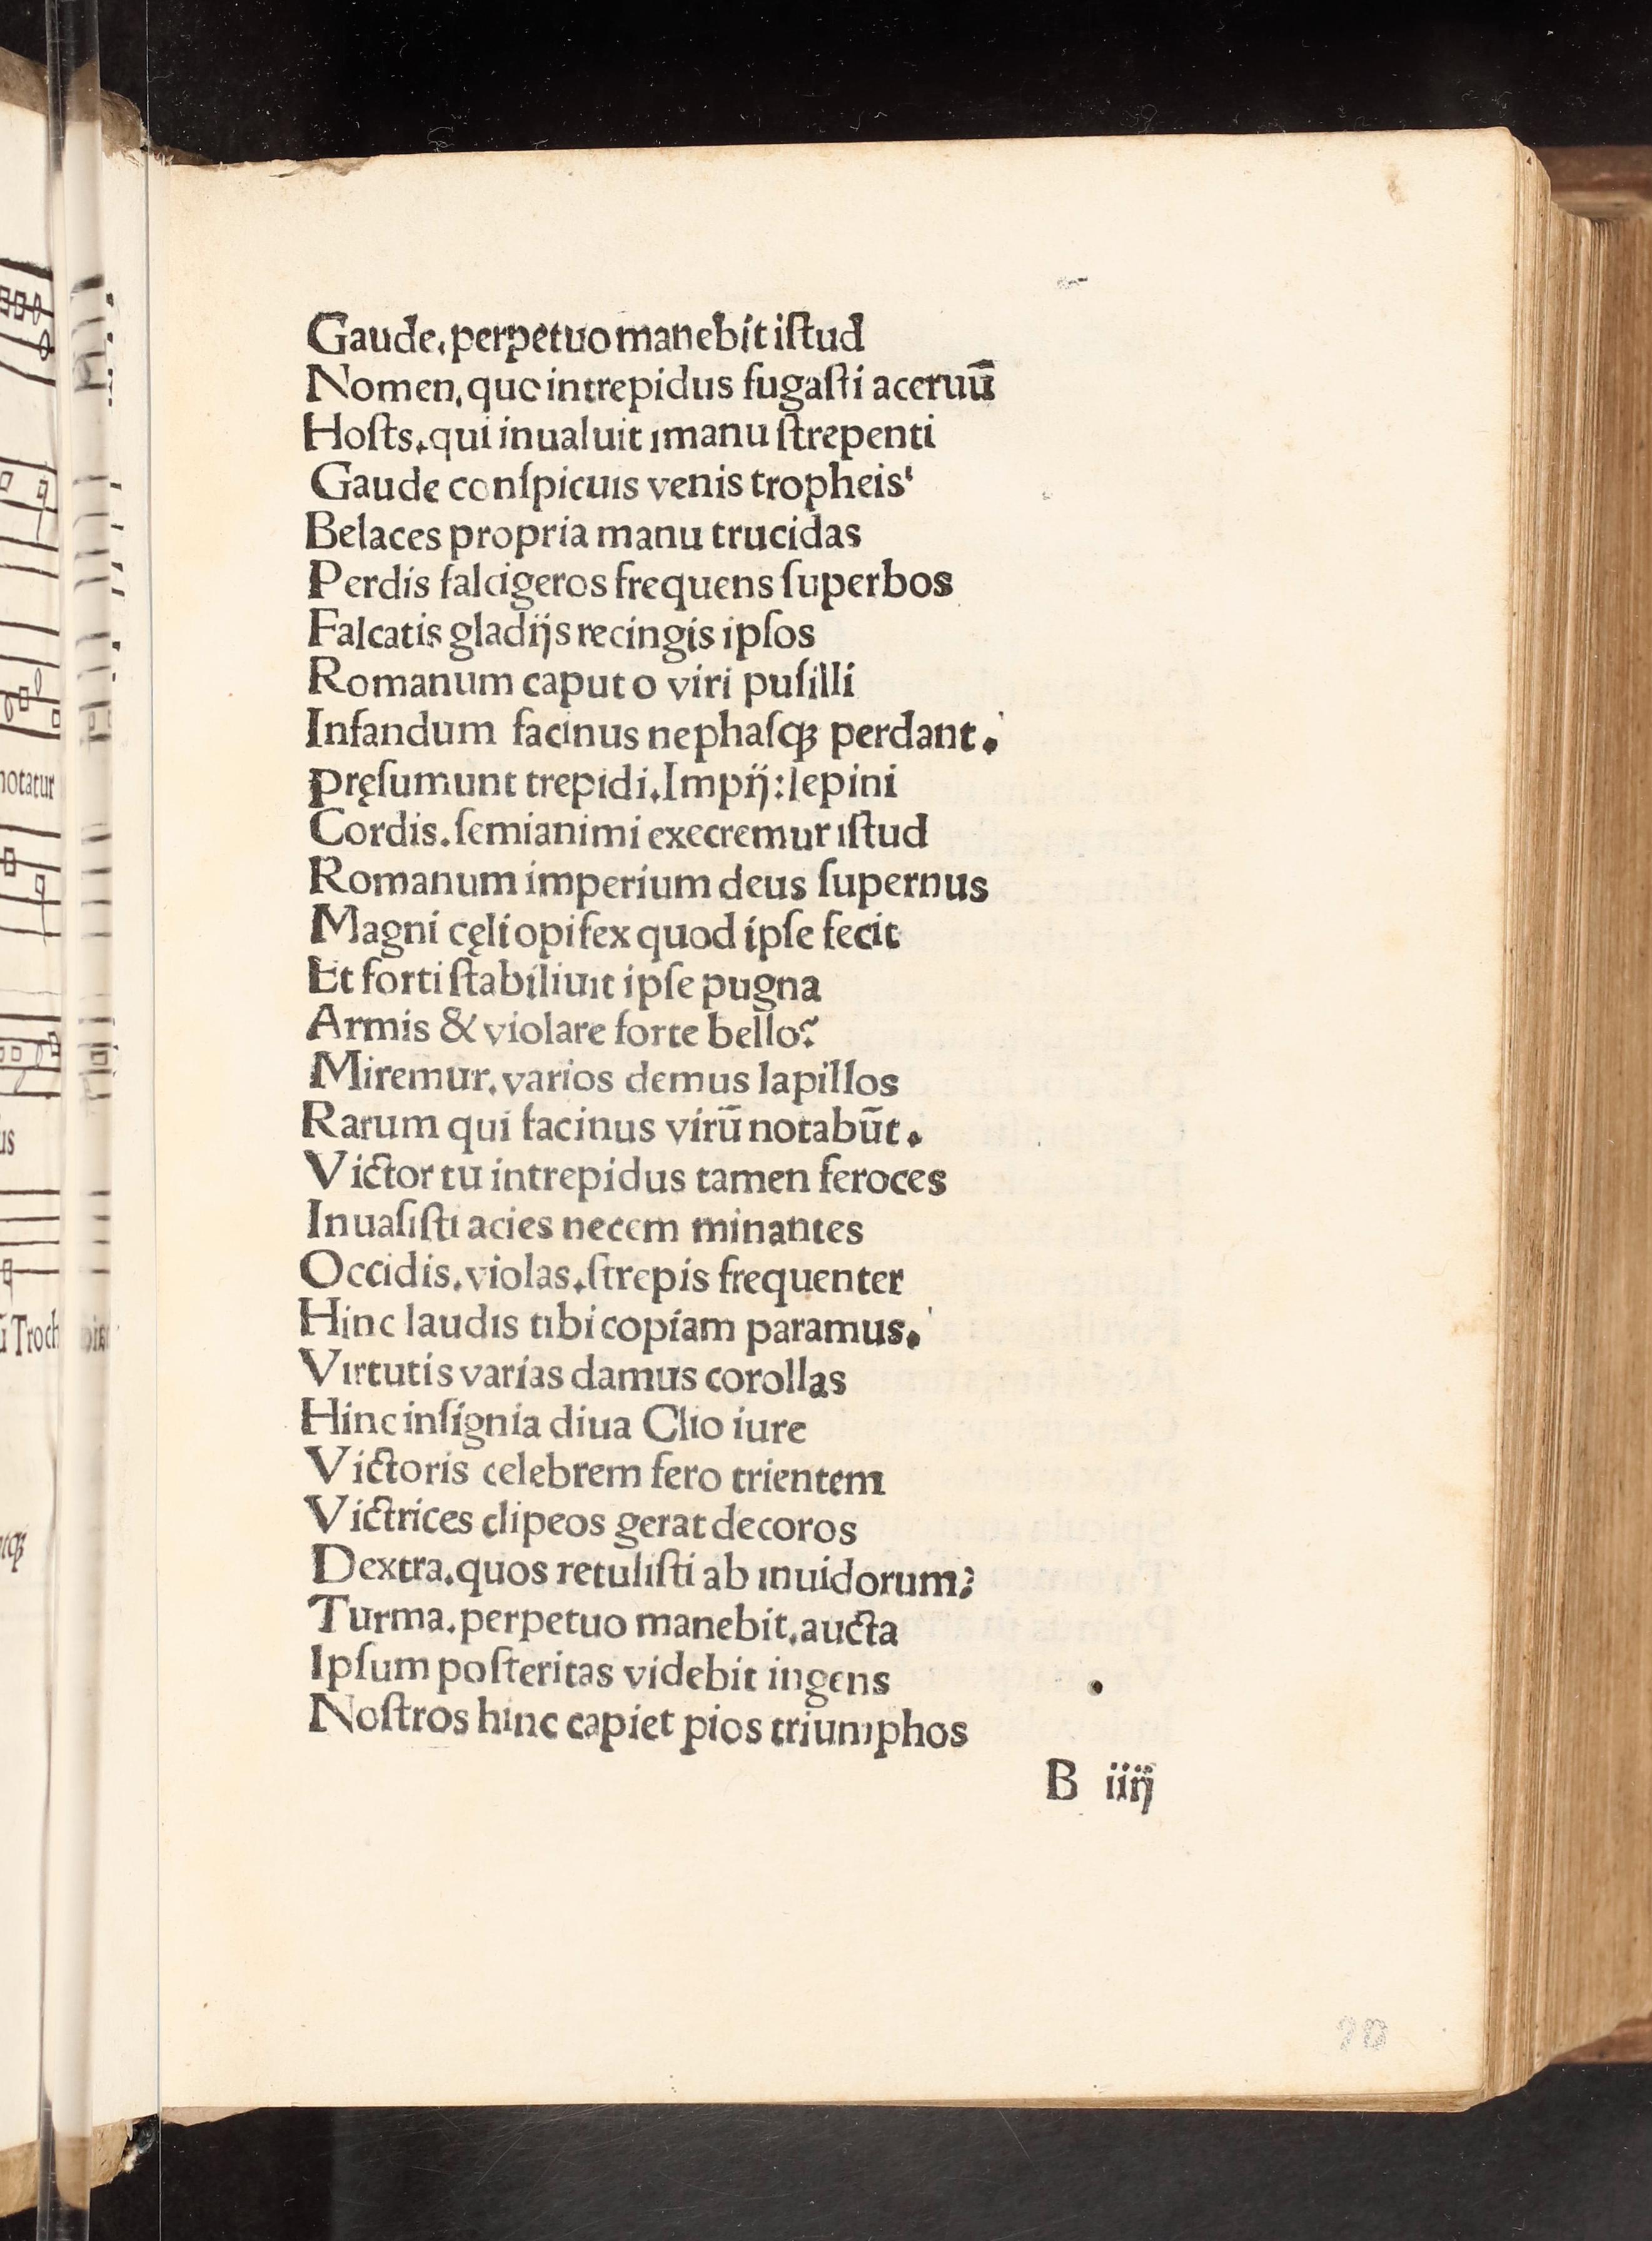 Gaude, perpetuo manebit iſtud
Nomen, quo intrepidus fugaſti aceruū
Hoſts, qui inualuit imanu ſtrepenti
Gaude conſpicuis venis tropheis'
Belaces propria manu trucidas
Perdis falcigeros frequens ſuperbos
Falcatis gladijs recingis ipſos
Romanum caput o viri puſilli
Infandum facinus nephaſqꝫ perdant.'
pręſumunt trepidi. Impij: lepini
Cordis. ſemianimi execremur iſtud
Romanum imperium deus ſupernus
Magni cęli opifex quod ipſe fecit
Et forti ſtabiliuit ipſe pugna
Armis & violare forte bello?
Miremur. varios demus lapillos
Rarum qui facinus virū notabūt.
Victor tu intrepidus tamen feroces
Inuaſiſti acies necem minantes
Occidis. violas. ſtrepis frequenter
Hinc laudis tibi copiam paramus.'
Virtutis varias damus corollas
Hinc inſignia diua Clio iure
Victoris celebrem fero trientem
Victrices clipeos gerat decoros
Dextra. quos retuliſti ab inuidorum?
Turma. perpetuo manebit. aucta
Ipſum poſteritas videbit ingens
Noſtros hinc capiet pios triumphos
B iiij
20
notatur
us
ū Troch